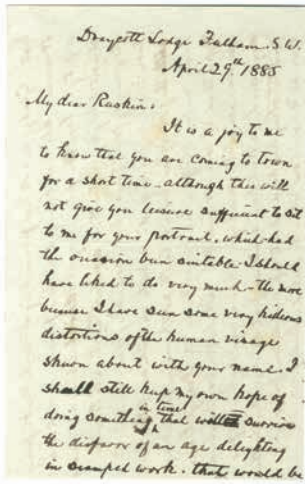 Draycott Lodge Fulham. S.W.
April 29th. 1885
My dear Ruskin.
It is a joy to me
to know that you are coming to town
for a short time - although this will
not give you leisure sufficient to sit
to me for your portrait. which - had
the occasion been suitable I should
have liked to do very much - the more
because I have seen some very hideous
distortions of the human visage
shewn about with your name. I
shall still keep my own hope of
doing something in time that will survive
the disfavor of an age delighting
in scamped work. that would be